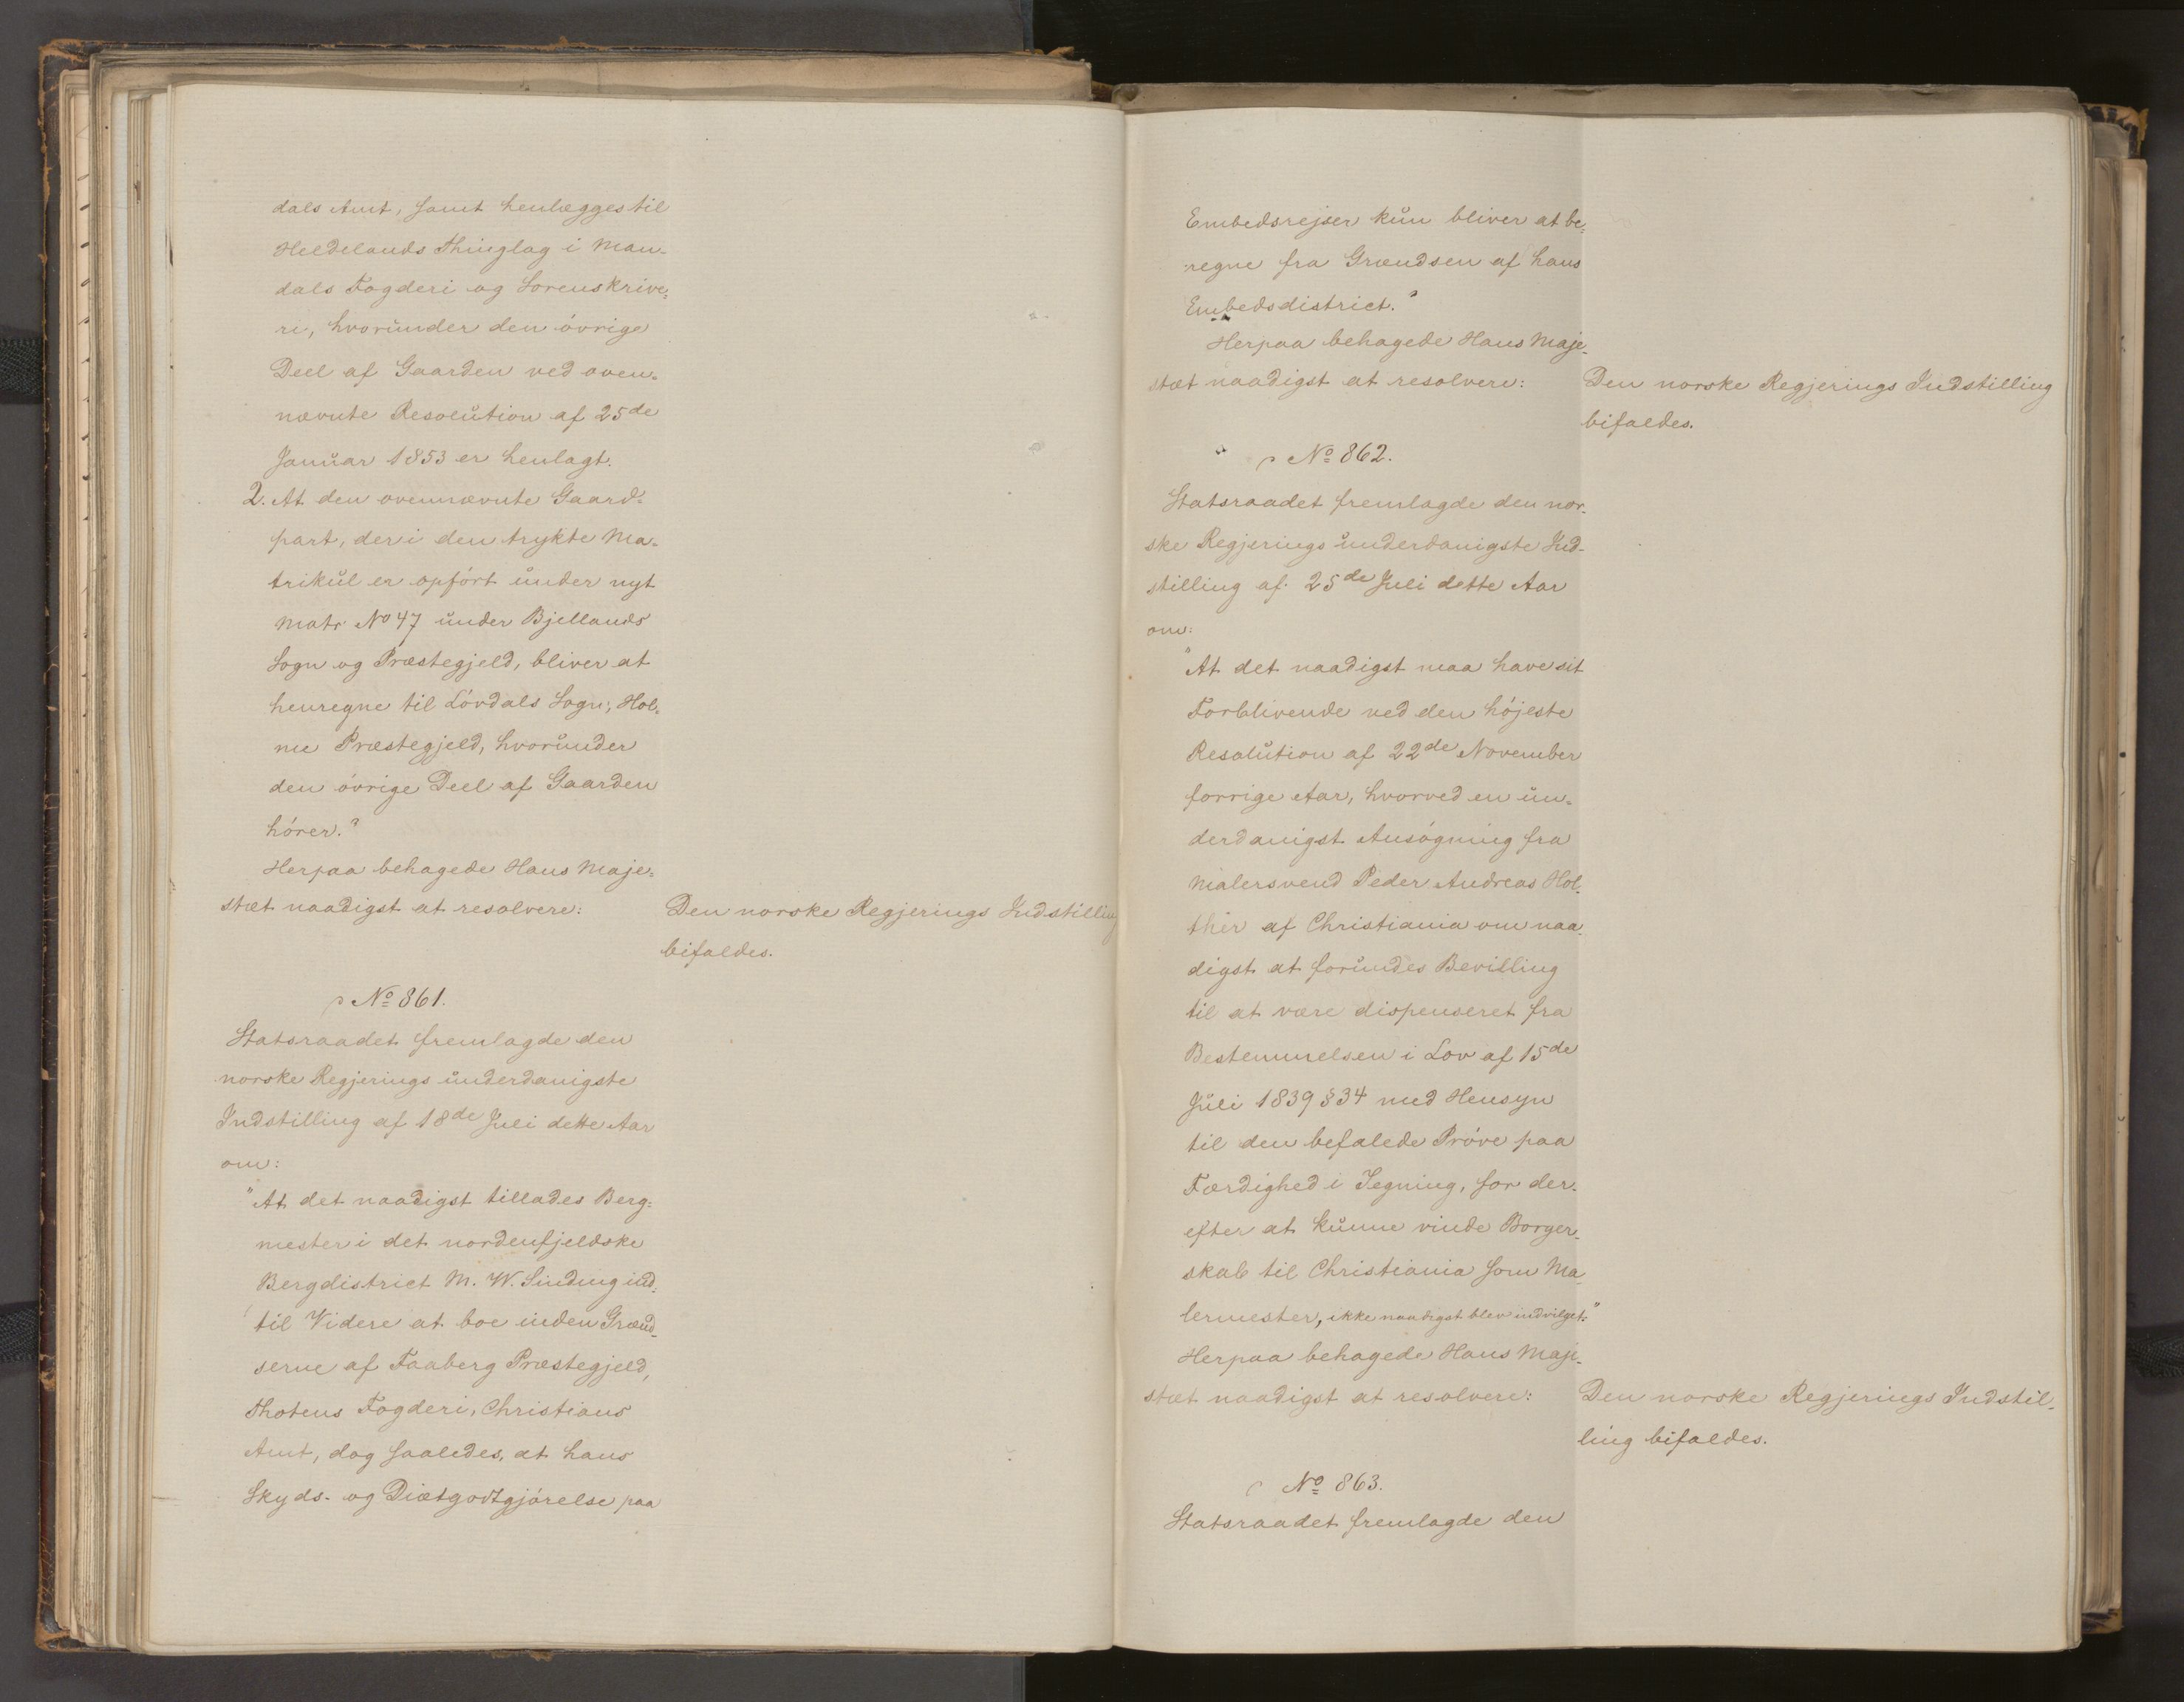 dals Amt, samt henlægges til
Heldelands Thinglag i Man-
dals Fogderi og Sorenskrive-
ri, hvorunder den övrige
Deel af Gaarden ved oven-
nævnte Resolution af 25de
Januar 1853 er henlagt.
2. At den ovennævnte Gaard-
part, der i den trykte Ma-
trikul er opfört under nyt
Matr No 47 under Bjellands
Sogn og Præstegjeld, bliver at
henregne til Lövdals Sogn, Hol-
me Præstegjeld, hvorunder
den övrige Deel af Gaarden
hörer."
Herpaa behagede Hans Maje-
stæt naadigst at resolvere:
Den norske Regjerings Indstilling
bifaldes.
No 861.
Statsraadet fremlagde den
norske Regjerings underdanigste
Indstilling af 18de Juli dette Aar
om:
"At det naadigst tillades Berg-
mester i det nordenfjeldske
Bergdistrict M. W. Sinding ind-
til Videre at boe inden Grænd-
serne af Faaberg Præstegjeld,
Thotens Fogderi, Christians
Amt, dog saaledes, at hans
Skyds- og Diætgodtgjörelse paa
Embedsrejser kun bliver at be-
regne fra Grændsen af hans
Embedsdistrict."
Herpaa behagede Hans Maje-
stæt naadigst at resolvere:
Den norske Regjerings Indstilling
bifaldes.
No 862.
Statsraadet fremlagde den nor-
ske Regjerings underdanigste Ind-
stilling af 25de Juli dette Aar
om:
"At det naadigst maa have sit
Forblivende ved den höjeste
Resolution af 22de November
forrige Aar, hvorved en un-
derdanigst Ansögning fra
Malersvend Peder Andreas Hol-
ther af Christiania om naa-
digst at forundes Bevilling
til at være dispenseret fra
Bestemmelsen i Lov af 15de
Juli 1839 § 34 med Hensyn
til den befalede Pröve paa
Færdighed i Tegning, for der-
efter at kunne vinde Borger-
skab til Christiania som Ma-
lermester, ikke naadigst blev indvilget."
Herpaa behagede Hans Maje-
stæt naadigst at resolvere:
Den norske Regjerings Indstil-
ling bifaldes.
No 863.
Statsraadet fremlagde den